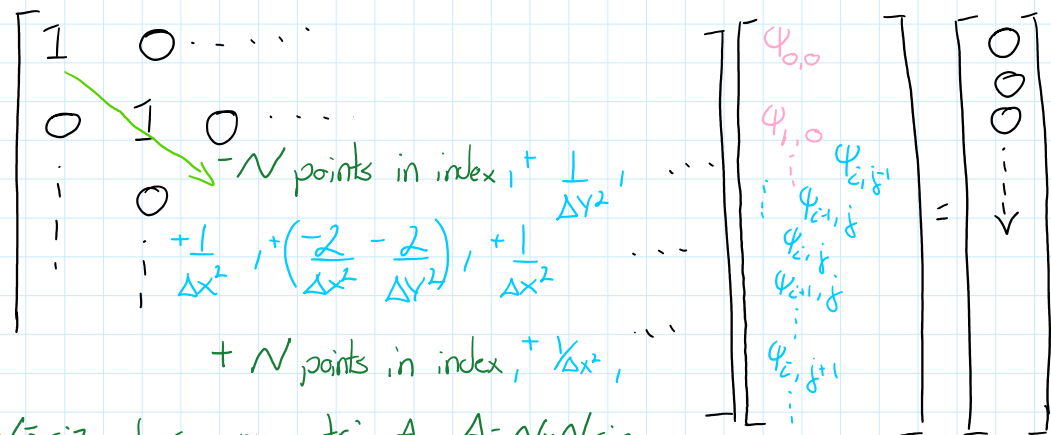 1 0 · · · · · ψ0,0 0
0
0 1 0 · · · · ψ1,0 0
- N points in index, + 1/ΔY², · · · ψi,j-1
0 ψi-1,j =
+1/Δx², +(-2/Δx² - 2/ΔY²), +1/Δx² · · · ψi,j
ψi+1,j
+ N points in index, + 1/Δx², · · · ψi,j+1